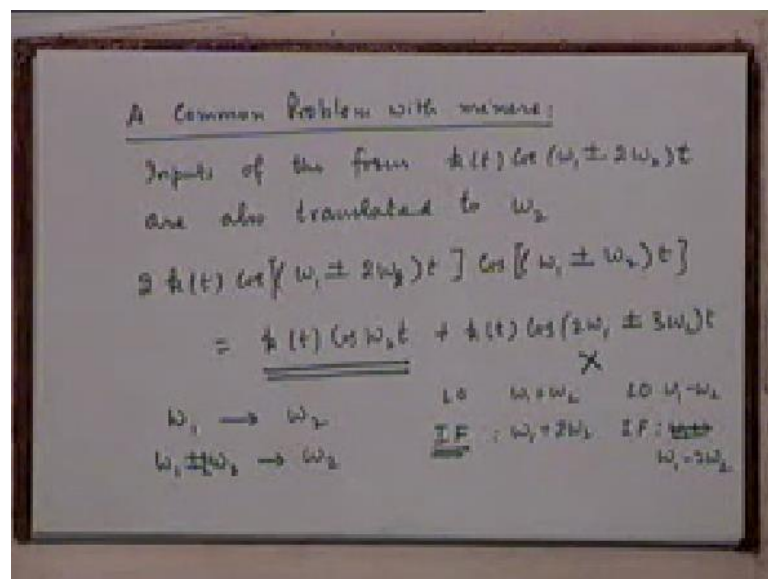 A Common Problem with mixers:
Inputs of the form k(t) Cos (ω₁ ± 2ω₂)t
are also translated to ω₂
2 k(t) Cos[(ω₁ ± 2ω₂)t] Cos[(ω₁ ± ω₂)t]
= k(t) Cos ω₂t + k(t) Cos(2ω₁ ± 3ω₂)t
X
LO ω₁+ω₂ LO ω₁-ω₂
ω₁ → ω₂ IF : ω₁+2ω₂ IF :
ω₁ ± 2ω₂ → ω₂ ω₁-2ω₂